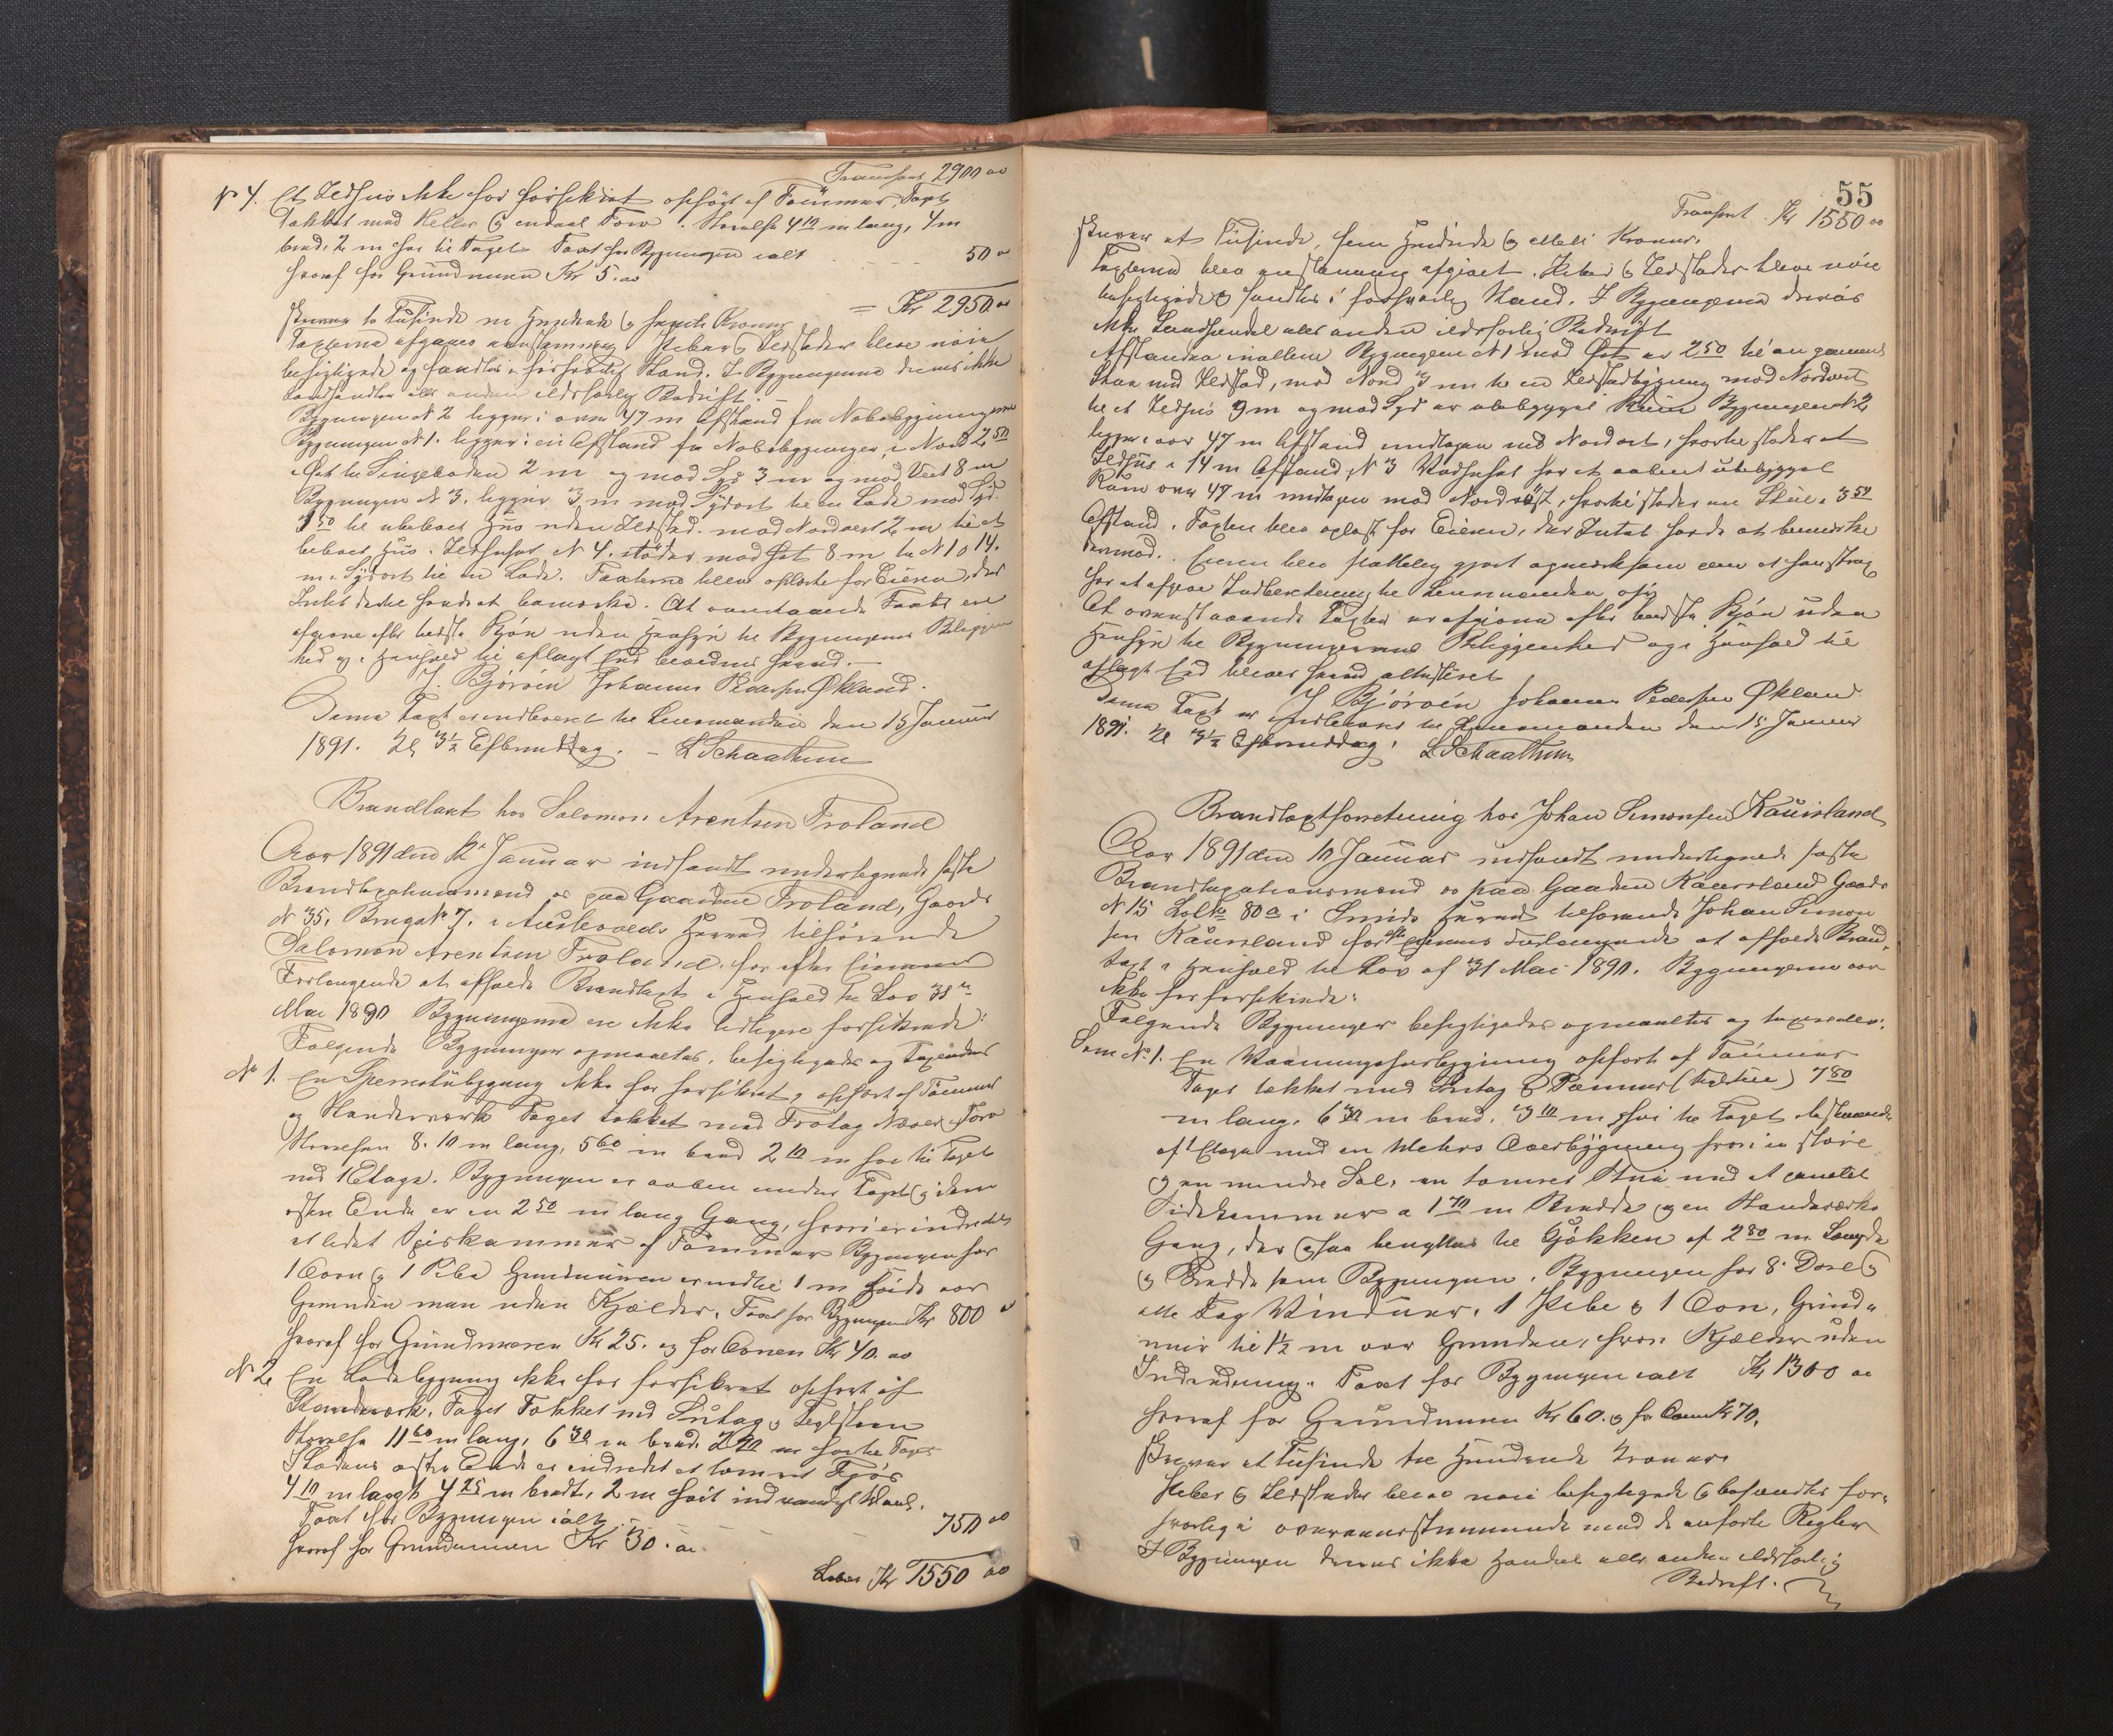 Transport 2900 00
No 4. Et Ildhus ikke før forsikret opført af Tømmer, Taget
Takket med Heller og endeel Torv. Størrelse 4 10 m lang, 4 m
bred, 2 m høi til Taget. Taxt for Bygningen ialt 50 00
hvoraf for Grundmuren Kr 5. 00
= Kr 2950 00
skriver to Tusinde ni Hundrede og femti Kroner
Taxterne afgaves eenstemmig. Piber og Ildsteder bleve nøie
besigtigede og fandtes i forsvarlig Stand. I Bygningerne drives ikke
Landhandlen eller anden ildsfarlig Bedrift. –
Bygningen No 2 ligger i over 47 m Afstand fra Nabobygningerne
Bygningen No 1. ligger i en Afstand fra Nabobygningen, i Nord 2 50
i Øst til 2 m og mod Syd 3 m og mod Vest 8 m
Bygningen No 3. ligger 3 m mod Sydost til en Lade mod Syd.
3 50 til ubeboet Hus uden Ildsted. mod Nordvest 2 m til et
beboet Hus. Ildhuset No 4. støder mod Øst 8 m til No 1 o 14.
m i Sydost til en Lade. Taxterne bleve oplæste for Eieren, der
Intet dertil havde at bemærke. At ovenstaaende Taxter ere
afgivne efter bedste Skjøn uden Hensyn til Bygningernes Beliggen
hed og i Henhold til aflagt Eed bevidnes herved. –
J. Bjørøen Johannes Pedersen Økland.
Denne Taxt er indleveret til Lensmanden den 15 Januar
1891. Kl 3 ½ Eftermiddag. – L Schaathun
Brandtaxt hos Salomon Arentsen Troland
Aar 1891 den 12 Januar indfandt undertegnede faste
Brandtaxationsmænd os paa Gaarden Troland, Gaards
No 35, Brugs No 7. i Austevolds Herred tilhørende
Salomon Arentsen Troland. for efter Eierens
Forlangende at afholde Brandtaxt i Henhold til Lov 31te
Mai 1890 Bygningerne ere ikke tidligere forsikrede:
Følgende Bygninger opmaaltes, besigtigedes og Taxeredes
No 1. En bygning ikke før forsikret, opført af Tømmer
og Standerværk Taget tækket med Trotag Næver og Torv
Størrelsen 8. 10 m lang, 5 60 m bred 2 10 m høi til Taget
med 1 Etage. Bygningen er aaben under Taget og i den
østre Ende er en 2 50 m lang Gang, hvori er indredet
et lidet Spiskammer af Tømmer Bygningen har
1 Ovn og 1 Pibe Grundmuren er indtil 1 m Høide over
Grunden men uden Kjælder. Taxt for Bygningen Kr 800
hvoraf for Grundmuren Kr 25. og for Ovnen Kr 40. 00
No 2 En Ladebygning ikke før forsikret opført af
Standerværk. Taget Tækket med og Teglsteen
Størrelse 11 60 m lang, 6 30 m bred. 2 90 m høi til Taget
I Ladens østre Ende er indredet et tømret Fjøs
4 10 m langt 4 25 m bredt, 2 m høit indvendigt Maal.
Taxt for Bygningen ialt – – – 750 00
hvoraf for Grundmuren Kr 30. 00
Kr 1550 00
55
Transport Kr 1550 00
skriver et Tusinde, fem Hundrede og Kroner.
Taxterne blev enstemmig afgivet. Piber og Ildsteder bleve nøie
besigtigede og fandtes i forsvarlig Stand. I Bygningerne drives
ikke Landhandel eller anden ildsfarlig Bedrift
Afstanden imellem Bygningen No 1 mod Øst er 2 50 til en gammel
Stue med Ildsted, mod Nord 3 m til en Ildstedbygning mod Nordvest
til et Ildhus 9 m og mod Syd er ubebygget Rum Bygningen No 2
ligger i over 47 m Afstand undtagen mod Nordost, hvortil støder et
Ildhus i 14 m Afstand, No 3 har et aabent ubebygget
Rum over 47 m undtagen mod Nordvest, hvortil støder en Stue i 3 50
Afstand. Taxten blev oplæst for Eieren, der Intet havde at bemærke
derimod. Eieren blev gjort opmærksom om at han strax
har at afgive Indberetning til Lensmanden
At ovenstaaende Taxter er afgivne efter bedste Skjøn uden
Hensyn til Bygningernes Beliggenhed og i Henhold til
aflagt Eed bliver herved attesteret
J Bjørøen Johannes Pedersen Økland
Denne Taxt er indleveret til Lensmanden den 15 Januar
1891. Kl 3 ½ Eftermiddag. L Schaathun
Brandtaxtforretning hos Johan Simonsen Kaursland
Aar 1891 den 10 Januar indfandt undertegnede faste
Brandtaxationsmænd os paa Gaarden Kaursland Gaards
No 15 Løb No 80 a i Sunds Herred tilhørende Johan Simon
sen Kaursland for efter Eierens Forlangende at afholde Brand
taxt i Henhold til Lov af 31 Mai 1890. Bygningerne var
ikke før forsikrede:
Følgende Bygninger besigtigedes opmaaltes og taxeredes:
Som No 1. En Vaaningshusbygning opført af Tømmer
Taget tækket med og Panner 7 80
m lang, 6 30 m bred. 3 10 m høi til Taget bestaaende
af 1 Etage med en Overbygning hvori en større
og en mindre Sal, en tømret Stue med et panelet
Sidekammer a 1 70 m Bredde og en Standerværks
Gang, der ogsaa benyttes til Kjøkken af 2 80 m Længde
og Bredde som Bygningen. Bygningen har 8 Døre og
Fag Vinduer. 1 Pibe og 1 Ovn, Grund-
mur til 1½ m over Grunden, hvori Kjælder uden
Indredning. Taxt for Bygningen ialt Kr 1300 00
hvoraf for Grundmuren Kr 60. og for Ovnen Kr 70.
skriver et Tusinde tre Hundrede Kroner
Piber og Ildsteder bleve nøie besigtigede og befandtes for-
svarlig i overensstemmende med de anførte Regler
I Bygningen drives ikke Handel eller anden ildsfarlig
Bedrift.